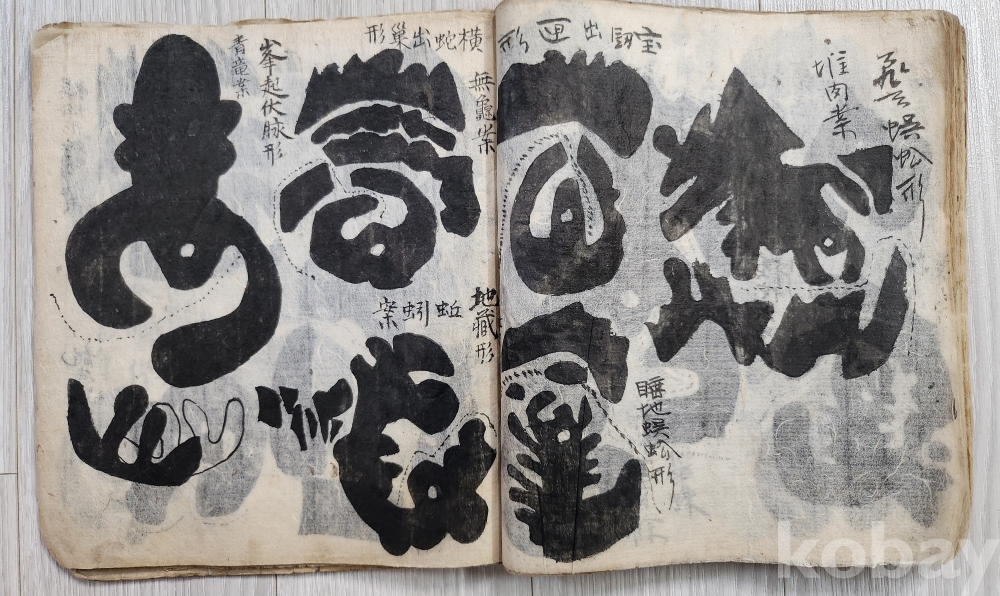 飛天蜈蚣形
堆肉案
宝釼出匣形
睡地蜈蚣形
横蛇出巢形
無龜案
地藏形
蚯蚓案
峯起伏脉形
青竜案
kobay